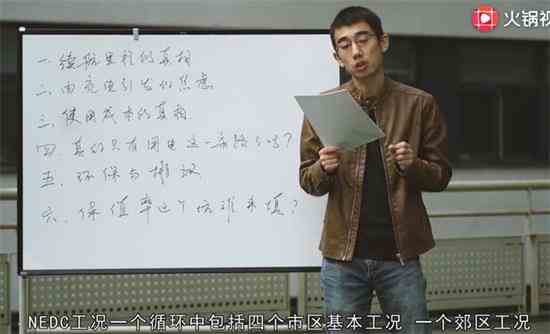 火锅视
一.续航里程的真相
二.由充电引发的焦虑
三.使用成本的真相
四.真的只有用电这一条路了吗?
五.环保与排放
六.保值率这个坑谁来填?
NEDC工况一个循环中包括四个市区基本工况 一个郊区工况